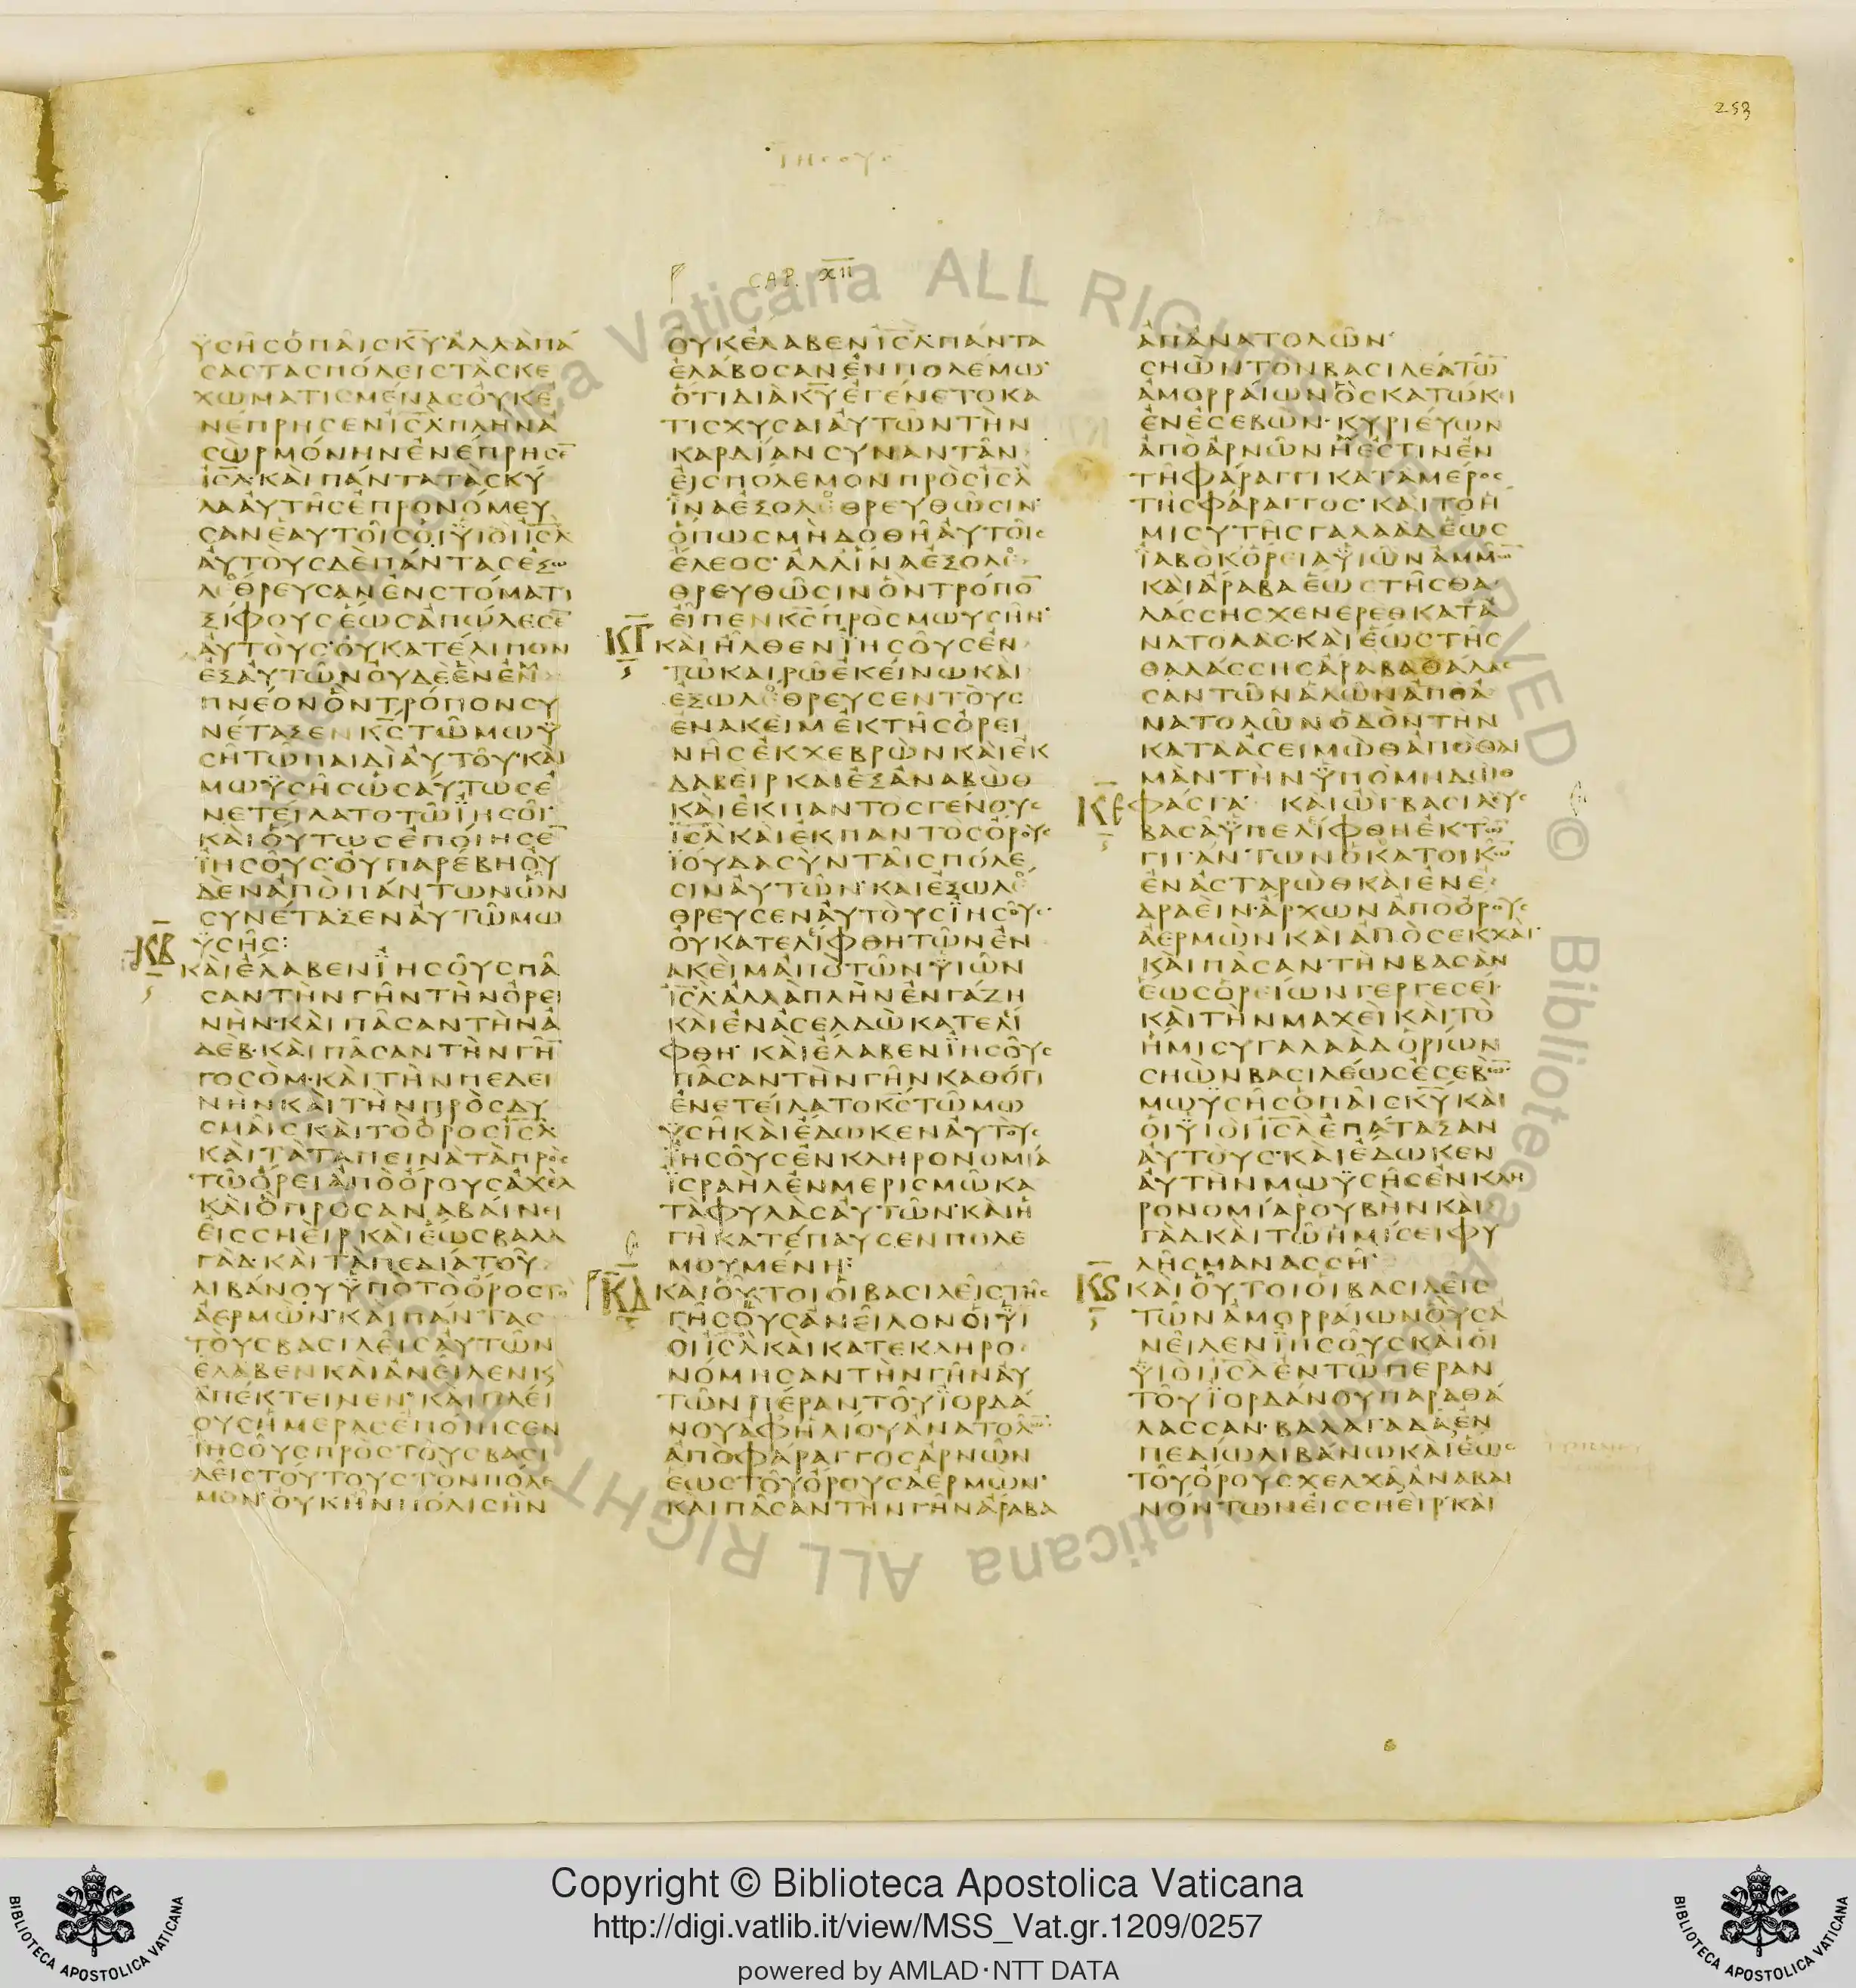 253
ΙΗΣΟΥΣ
CAP. XII
ΥΣΗΣ Ο ΠΑΙΣ ΚΥ· ΑΛΛΑ ΠΑ
ΣΑΣ ΤΑΣ ΠΟΛΕΙΣ ΤΑΣ ΚΕ
ΧΩΜΑΤΙΣΜΕΝΑΣ ΟΥΚ Ε
ΝΕΠΡΗΣΕΝ ΙΣΛ· ΠΛΗΝ Α
ΣΩΡ ΜΟΝΗΝ ΕΝΕΠΡΗΣΕ̅
ΙΣΛ· ΚΑΙ ΠΑΝΤΑ ΤΑ ΣΚΥ
ΛΑ ΑΥΤΗΣ ΕΠΡΟΝΟΜΕΥ
ΣΑΝ ΕΑΥΤΟΙΣ ΟΙ ΥΙΟΙ ΙΣΛ
ΑΥΤΟΥΣ ΔΕ ΠΑΝΤΑΣ ΕΞΩ
ΛΕΘΡΕΥΣΑΝ ΕΝ ΣΤΟΜΑΤΙ
ΞΙΦΟΥΣ ΕΩΣ ΑΠΩΛΕΣΕ̅
ΑΥΤΟΥΣ· ΟΥ ΚΑΤΕΛΙΠΟΝ
ΕΞ ΑΥΤΩΝ ΟΥΔΕ ΕΝ ΕΜ
ΠΝΕΟΝ ΟΝ ΤΡΟΠΟΝ ΣΥ
ΝΕΤΑΞΕΝ ΚΣ ΤΩ ΜΩΥ
ΣΗ ΤΩ ΠΑΙΔΙ ΑΥΤΟΥ· ΚΑΙ
ΜΩΥΣΗΣ ΩΣΑΥΤΩΣ Ε
ΝΕΤΕΙΛΑΤΟ ΤΩ ΙΗΣΟΙ·
ΚΑΙ ΟΥΤΩΣ ΕΠΟΙΗΣΕ̅
ΙΗΣΟΥΣ· ΟΥ ΠΑΡΕΒΗ ΟΥ
ΔΕΝ ΑΠΟ ΠΑΝΤΩΝ ΩΝ
ΣΥΝΕΤΑΞΕΝ ΑΥΤΩ ΜΩ
ΥΣΗΣ:
ΚΒ
ΚΑΙ ΕΛΑΒΕΝ ΙΗΣΟΥΣ ΠΑ
ΣΑΝ ΤΗΝ ΓΗΝ ΤΗΝ ΟΡΕΙ
ΝΗΝ· ΚΑΙ ΠΑΣΑΝ ΤΗΝ Α
ΔΕΒ· ΚΑΙ ΠΑΣΑΝ ΤΗΝ ΓΗ̅
ΓΟΣΟΜ· ΚΑΙ ΤΗΝ ΠΕΔΕΙ
ΝΗΝ ΚΑΙ ΤΗΝ ΠΡΟΣ ΔΥ
ΣΜΑΙΣ ΚΑΙ ΤΟ ΟΡΟΣ ΙΣΛ
ΚΑΙ ΤΑ ΤΑΠΕΙΝΑ ΤΑ ΠΡΟΣ
ΤΩ ΟΡΕΙ ΑΠΟ ΟΡΟΥΣ ΑΧΕΛ
ΚΑΙ Ο ΠΡΟΣΑΝΑΒΑΙΝΕΙ
ΕΙΣ ΣΗΕΙΡ ΚΑΙ ΕΩΣ ΒΑΛΑ
ΓΑΔ· ΚΑΙ ΤΑ ΠΕΔΙΑ ΤΟΥ
ΛΙΒΑΝΟΥ ΥΠΟ ΤΟ ΟΡΟΣ ΤΟ
ΑΕΡΜΩΝ· ΚΑΙ ΠΑΝΤΑΣ
ΤΟΥΣ ΒΑΣΙΛΕΙΣ ΑΥΤΩΝ
ΕΛΑΒΕΝ ΚΑΙ ΑΝΕΙΛΕΝ Κ
ΑΠΕΚΤΕΙΝΕΝ· ΚΑΙ ΠΛΕΙ
ΟΥΣ ΗΜΕΡΑΣ ΕΠΟΙΗΣΕΝ
ΙΗΣΟΥΣ ΠΡΟΣ ΤΟΥΣ ΒΑΣΙ
ΛΕΙΣ ΤΟΥΤΟΥΣ ΤΟΝ ΠΟΛΕ
ΜΟΝ· ΟΥΚ ΗΝ ΠΟΛΙΣ ΗΝ
ΟΥΚ ΕΛΑΒΕΝ ΙΣΛ· ΠΑΝΤΑ
ΕΛΑΒΟΣΑΝ ΕΝ ΠΟΛΕΜΩ·
ΟΤΙ ΔΙΑ ΚΥ ΕΓΕΝΕΤΟ ΚΑ
ΤΙΣΧΥΣΑΙ ΑΥΤΩΝ ΤΗΝ
ΚΑΡΔΙΑΝ ΣΥΝΑΝΤΑΝ
ΕΙΣ ΠΟΛΕΜΟΝ ΠΡΟΣ ΙΣΛ
ΙΝΑ ΕΞΟΛΕΘΡΕΥΘΩΣΙΝ·
ΟΠΩΣ ΜΗ ΔΟΘΗ ΑΥΤΟΙΣ
ΕΛΕΟΣ· ΑΛΛ ΙΝΑ ΕΞΟΛΕ
ΘΡΕΥΘΩΣΙΝ ΟΝ ΤΡΟΠΟ̅
ΕΙΠΕΝ ΚΣ ΠΡΟΣ ΜΩΥΣΗΝ·
ΚΓ
ΚΑΙ ΗΛΘΕΝ ΙΗΣΟΥΣ ΕΝ
ΤΩ ΚΑΙΡΩ ΕΚΕΙΝΩ ΚΑΙ
ΕΞΩΛΕΘΡΕΥΣΕΝ ΤΟΥΣ
ΕΝΑΚΕΙΜ ΕΚ ΤΗΣ ΟΡΕΙ
ΝΗΣ ΕΚ ΧΕΒΡΩΝ ΚΑΙ ΕΚ
ΔΑΒΕΙΡ ΚΑΙ ΕΞ ΑΝΑΒΩΘ
ΚΑΙ ΕΚ ΠΑΝΤΟΣ ΓΕΝΟΥΣ
ΙΣΛ ΚΑΙ ΕΚ ΠΑΝΤΟΣ ΟΡΟΥΣ
ΙΟΥΔΑ ΣΥΝ ΤΑΙΣ ΠΟΛΕ
ΣΙΝ ΑΥΤΩΝ· ΚΑΙ ΕΞΩΛΕ
ΘΡΕΥΣΕΝ ΑΥΤΟΥΣ ΙΗΣΟΥΣ·
ΟΥ ΚΑΤΕΛΙΦΘΗ ΤΩΝ ΕΝ
ΑΚΕΙΜ ΑΠΟ ΤΩΝ ΥΙΩΝ
ΙΣΛ· ΑΛΛΑ ΠΛΗΝ ΕΝ ΓΑΖΗ
ΚΑΙ ΕΝ ΑΣΕΛΔΩ ΚΑΤΕΛΙ
ΦΘΗ· ΚΑΙ ΕΛΑΒΕΝ ΙΗΣΟΥΣ
ΠΑΣΑΝ ΤΗΝ ΓΗΝ ΚΑΘΟΤΙ
ΕΝΕΤΕΙΛΑΤΟ ΚΣ ΤΩ ΜΩ
ΥΣΗ ΚΑΙ ΕΔΩΚΕΝ ΑΥΤΟΥΣ
ΙΗΣΟΥΣ ΕΝ ΚΛΗΡΟΝΟΜΙΑ
ΙΣΡΑΗΛ ΕΝ ΜΕΡΙΣΜΩ ΚΑ
ΤΑ ΦΥΛΑΣ ΑΥΤΩΝ· ΚΑΙ Η
ΓΗ ΚΑΤΕΠΑΥΣΕΝ ΠΟΛΕ
ΜΟΥΜΕΝΗ:
ΚΔ
ΚΑΙ ΟΥΤΟΙ ΟΙ ΒΑΣΙΛΕΙΣ ΤΗΣ
ΓΗΣ ΟΥΣ ΑΝΕΙΛΟΝ ΟΙ ΥΙ
ΟΙ ΙΣΛ ΚΑΙ ΚΑΤΕΚΛΗΡΟ
ΝΟΜΗΣΑΝ ΤΗΝ ΓΗΝ ΑΥ
ΤΩΝ ΠΕΡΑΝ ΤΟΥ ΙΟΡΔΑ
ΝΟΥ ΑΦ ΗΛΙΟΥ ΑΝΑΤΟΛΩ̅·
ΑΠΟ ΦΑΡΑΓΓΟΣ ΑΡΝΩΝ
ΕΩΣ ΤΟΥ ΟΡΟΥΣ ΑΕΡΜΩΝ·
ΚΑΙ ΠΑΣΑΝ ΤΗΝ ΓΗΝ ΑΡΑΒΑ
ΑΠ ΑΝΑΤΟΛΩΝ·
ΣΗΩΝ ΤΟΝ ΒΑΣΙΛΕΑ ΤΩ̅
ΑΜΟΡΡΑΙΩΝ ΟΣ ΚΑΤΩΚΕΙ
ΕΝ ΕΣΕΒΩΝ· ΚΥΡΙΕΥΩΝ
ΑΠΟ ΑΡΝΩΝ Η ΕΣΤΙΝ ΕΝ
ΤΗ ΦΑΡΑΓΓΙ ΚΑΤΑ ΜΕΡΟΣ
ΤΗΣ ΦΑΡΑΓΓΟΣ· ΚΑΙ ΤΟ Η
ΜΙΣΥ ΤΗΣ ΓΑΛΑΑΔ ΕΩΣ
ΙΑΒΟΚ ΟΡΕΙΑ ΥΙΩΝ ΑΜΜΩ̅
ΚΑΙ ΑΡΑΒΑ ΕΩΣ ΤΗΣ ΘΑ
ΛΑΣΣΗΣ ΧΕΝΕΡΕΘ ΚΑΤ Α
ΝΑΤΟΛΑΣ· ΚΑΙ ΕΩΣ ΤΗΣ
ΘΑΛΑΣΣΗΣ ΑΡΑΒΑ ΘΑΛΑΣ
ΣΑΝ ΤΩΝ ΑΛΩΝ ΑΠΟ Α
ΝΑΤΟΛΩΝ ΟΔΟΝ ΤΗΝ
ΚΑΤΑ ΑΣΕΙΜΩΘ ΑΠΟ ΘΑΙ
ΜΑΝ ΤΗΝ ΥΠΟ ΜΗΔΩΘ
ΚΕ
ΦΑΣΓΑ· ΚΑΙ ΩΓ ΒΑΣΙΛΕΥΣ
ΒΑΣΑ ΥΠΕΛΙΦΘΗ ΕΚ ΤΩ̅
ΓΙΓΑΝΤΩΝ Ο ΚΑΤΟΙΚΩ̅
ΕΝ ΑΣΤΑΡΩΘ ΚΑΙ ΕΝ Ε
ΔΡΑΕΙΝ· ΑΡΧΩΝ ΑΠΟ ΟΡΟΥΣ
ΑΕΡΜΩΝ ΚΑΙ ΑΠΟ ΣΕΚΧΑΙ·
ΚΑΙ ΠΑΣΑΝ ΤΗΝ ΒΑΣΑΝ
ΕΩΣ ΟΡΕΙΩΝ ΓΕΡΓΕΣΕΙ·
ΚΑΙ ΤΗΝ ΜΑΧΕΙ ΚΑΙ ΤΟ
ΗΜΙΣΥ ΓΑΛΑΑΔ ΟΡΙΩΝ
ΣΗΩΝ ΒΑΣΙΛΕΩΣ ΕΣΕΒΩ̅·
ΜΩΥΣΗΣ Ο ΠΑΙΣ ΚΥ ΚΑΙ
ΟΙ ΥΙΟΙ ΙΣΛ ΕΠΑΤΑΞΑΝ
ΑΥΤΟΥΣ· ΚΑΙ ΕΔΩΚΕΝ
ΑΥΤΗΝ ΜΩΥΣΗΣ ΕΝ ΚΛΗ
ΡΟΝΟΜΙΑ ΡΟΥΒΗΝ ΚΑΙ
ΓΑΔ ΚΑΙ ΤΩ ΗΜΙΣΕΙ ΦΥ
ΛΗΣ ΜΑΝΑΣΣΗ·
ΚϚ
ΚΑΙ ΟΥΤΟΙ ΟΙ ΒΑΣΙΛΕΙΣ
ΤΩΝ ΑΜΟΡΡΑΙΩΝ ΟΥΣ Α
ΝΕΙΛΕΝ ΙΗΣΟΥΣ ΚΑΙ ΟΙ
ΥΙΟΙ ΙΣΛ ΕΝ ΤΩ ΠΕΡΑΝ
ΤΟΥ ΙΟΡΔΑΝΟΥ ΠΑΡΑ ΘΑ
ΛΑΣΣΑΝ· ΒΑΛΑΓΑΔΑ ΕΝ
ΠΕΔΙΩ ΛΙΒΑΝΩ ΚΑΙ ΕΩΣ
ΤΟΥ ΟΡΟΥΣ ΧΕΛΧΑ ΑΝΑΒΑΙ
ΝΟΝΤΩΝ ΕΙΣ ΣΗΕΙΡ· ΚΑΙ
Copyright © Biblioteca Apostolica Vaticana
http://digi.vatlib.it/view/MSS_Vat.gr.1209/0257
powered by AMLAD·NTT DATA
BIBLIOTECA APOSTOLICA VATICANA
BIBLIOTECA APOSTOLICA VATICANA